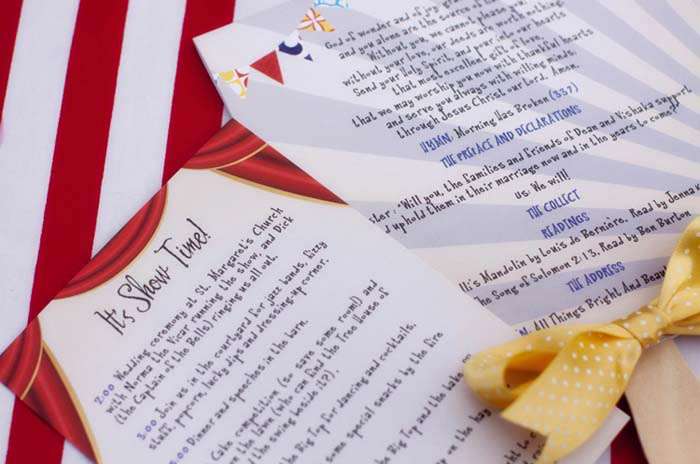 God of wonder and of joy
and you alone are the source of
Without you, we cannot please you
without your love, our deeds are worth nothing.
Send your Holy Spirit, and pour into our hearts
that most excellent gift of love,
that we may worship you now with thankful hearts
and serve you always with willing minds,
through Jesus Christ our Lord. Amen.
HYMN: Morning Has Broken (337)
THE PREFACE AND DECLARATIONS
'Will you, the families and friends of Dean and Nishaka support
uphold them in their marriage now and in the years to come?
us: We will!
THE COLLECT
READINGS
Mandolin by Louis de Berniere. Read by
The Song of Solomon 2:13. Read by Ben Burton
THE ADDRESS
All Things Bright And
It's Show Time!
2:00 Wedding ceremony at St. Margaret's Church
with Norma the Vicar running the show, and Dick
(the Captain of the Bells) ringing us all out.
3:00 Join us in the courtyard for jazz bands, fizzy
stuff, popcorn, lucky dips and dressing-up corner.
:00 Dinner and speeches in the barn.
Cake competition (so save some room!) and
on the lawn (who can find the Tree House or
the swing beside it?).
the Big Top for dancing and cocktails,
some special snacks by the fire
the Big Top and the